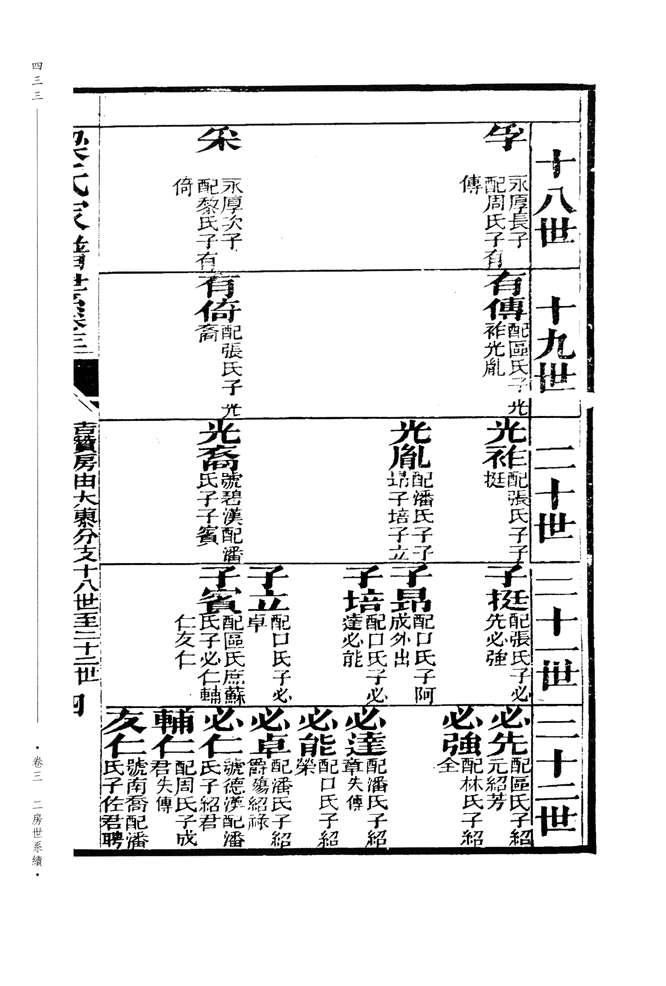 十八世
孚
永厚長子
配周氏子有
傳
采
永厚次子
配黎氏子有
倚
十九世
有傳
配區氏子光
祚光胤
有倚
配張氏子光
裔
二十世
光祚
配張氏子子
挺
光胤
配潘氏子子
昻子培子立
光裔
號碧漢配潘
氏子子賓
二十一世
子挺
配張氏子必
先必強
子昻
配口氏子阿
成外出
子培
配口氏子必
達必能
子立
配口氏子必
卓
子賓
配區氏庶蘇
氏子必仁輔
仁友仁
二十二世
必先
配區氏子紹
元紹芳
必強
配林氏子紹
全
必達
配潘氏子紹
章失傳
必能
配口氏子紹
榮
必卓
配潘氏子紹
爵殤紹祿
必仁
號德漢配潘
氏子紹君
輔仁
配周氏子成
君失傳
友仁
號南裔配潘
氏子佐君聘
梁氏家譜世系卷三
吉贊房由大東分支十八世至二十二世
四
四三三
·卷三 二房世系續·